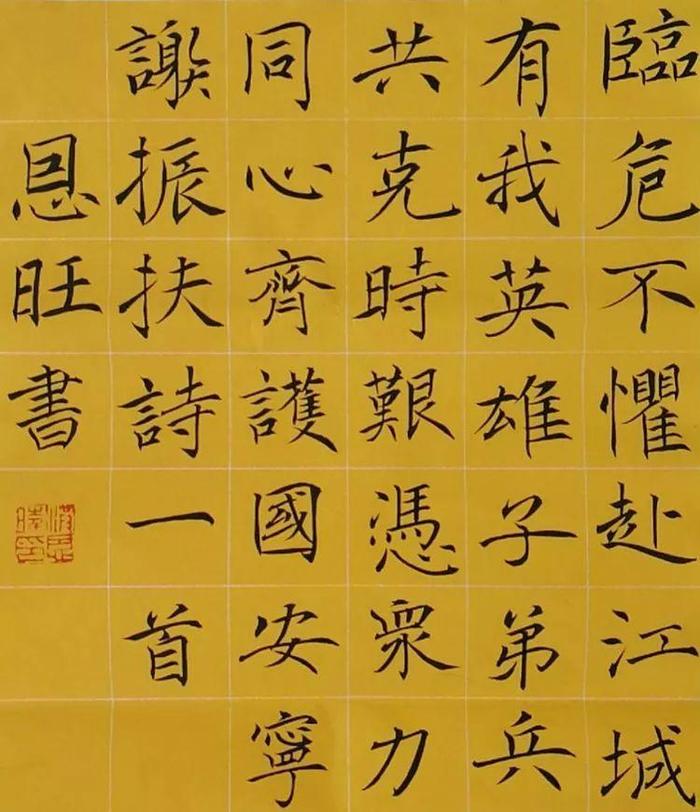 臨危不懼赴江城
有我英雄子弟兵
共克時艱憑衆力
同心齊護國安寧
謝振扶詩一首
恩旺書